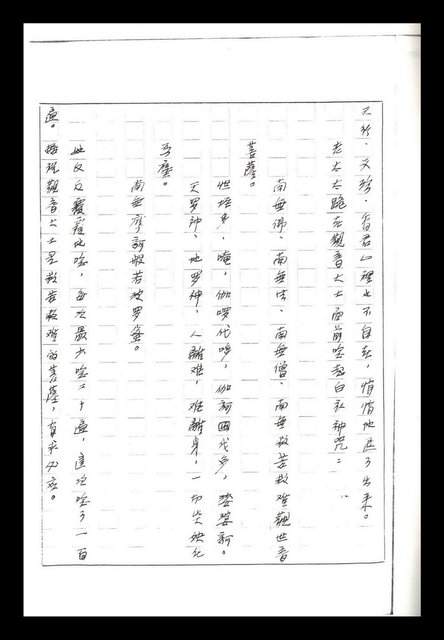 天珍、文珍、香君心裡也不自在，悄悄地退了出來。
老太太跪在觀音大士面前唸起白衣神咒：
南無佛、南無法、南無僧、南無救苦救難觀世音
菩薩。
怛垤多、唵，伽囉伐哆，伽訶囉伐多，娑婆訶。
天羅神、地羅神、人離難，難離身，一切災殃化
為塵。
南無摩訶般若波羅蜜。
她反反覆覆地唸，每次最少唸二十遍，這次唸了一百
遍。據說觀音大士是救苦救難的菩薩，有求必應。